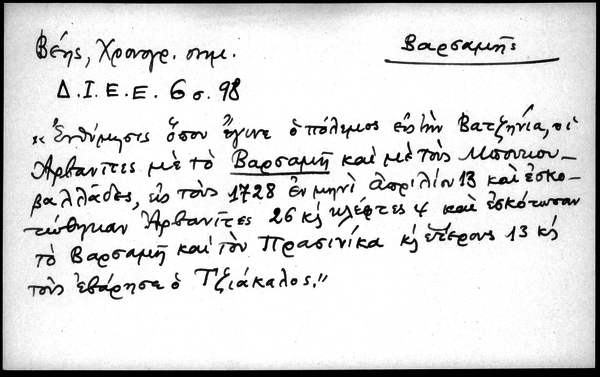 Βέης, Χρονογρ. σημ.
Βαρσαμῆς
Δ.Ι.Ε.Ε. 6 σ. 98
«Ἐνθύμησις ὅπου ἔγινε ὁ πόλεμος εἰς τὴν Βατζηνία, οἱ
Ἀρβανῖτες μὲ τὸ Βαρσαμῆ καὶ μὲ τοὺς Μπουκου-
βαλλάδες, εἰς τοὺς 1728 ἐν μηνὶ ἀπριλίου 13 καὶ ἐσκο-
τώθηκαν Ἀρβανῖτες 26 κὴ κλέφτες 4 καὶ ἐσκότωσαν
τὸ Βαρσαμῆ καὶ τὸν Πρασινίκα κὴ ἑτέρους 13 κὴ
τοὺς ἐβάρησε ὁ Τζιάκαλος.»